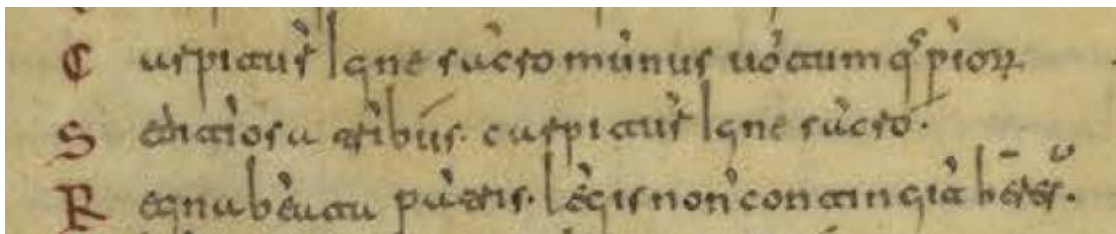 Carpitur Igne sacro munus uotumq; piorum
Seditiosa tribus. carpitur Igne sacro.
Regna beata patris. legis non contingit heres.